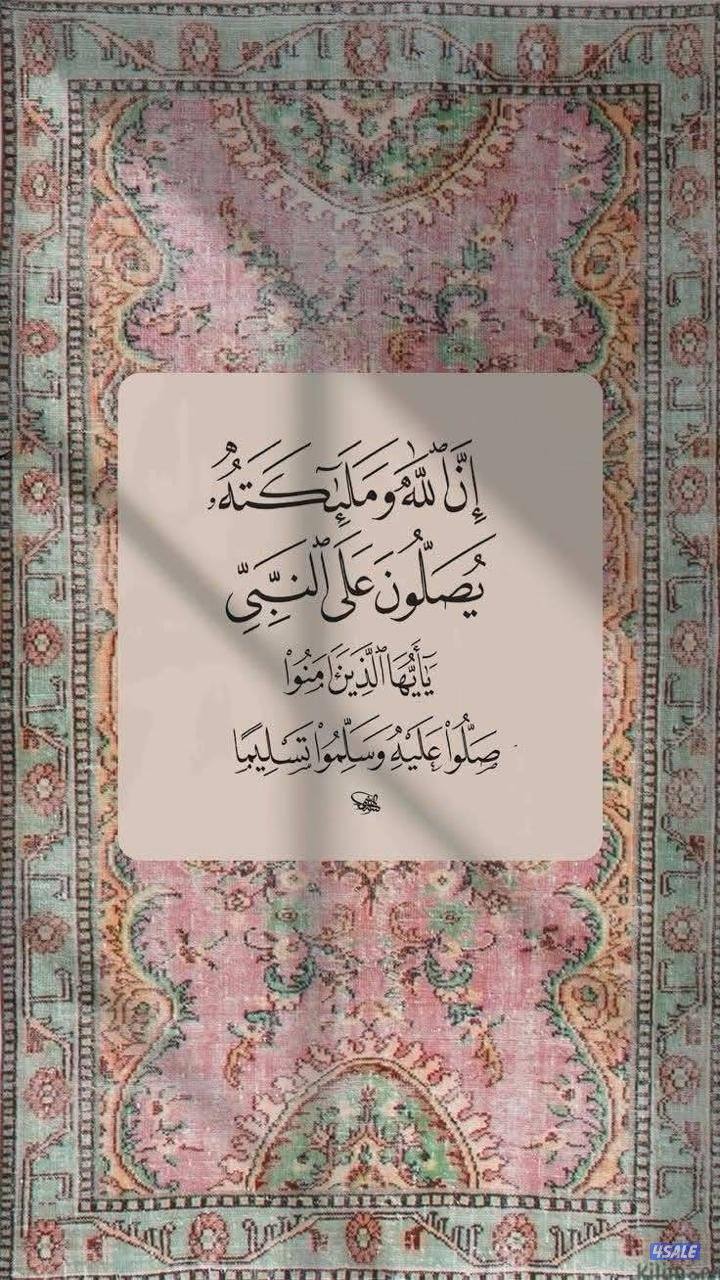 إِنَّ ٱللَّهَ وَمَلَٰٓئِكَتَهُۥ
يُصَلُّونَ عَلَى ٱلنَّبِىِّ
يَٰٓأَيُّهَا ٱلَّذِينَ ءَامَنُوا۟
صَلُّوا۟ عَلَيْهِ وَسَلِّمُوا۟ تَسْلِيمًا
4SALE